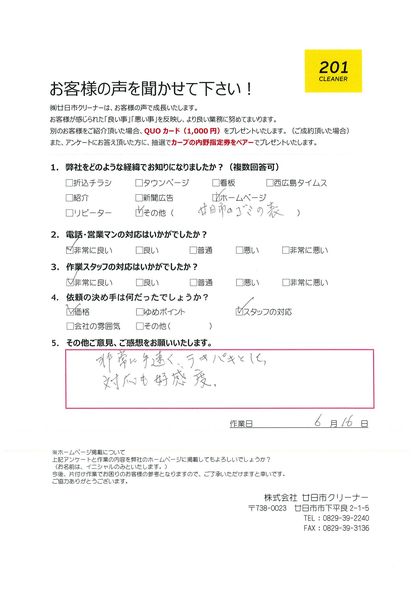 201
CLEANER
お客様の声を聞かせて下さい！
㈱廿日市クリーナーは、お客様の声で成長いたします。
お客様が感じられた「良い事」「悪い事」を反映し、より良い業務に努めてまいります。
別のお客様をご紹介頂いた場合、QUOカード（1,000円）をプレゼントいたします。（ご成約頂いた場合）
また、アンケートにお答え頂いた方に、抽選でカープの内野指定券をペアーでプレゼントいたします。
1. 弊社をどのような経緯でお知りになりましたか？（複数回答可）
□折込チラシ □タウンページ □看板 □西広島タイムス
□紹介 □新聞広告 ☑ホームページ
□リピーター ☑その他（ 廿日市のごみの表 ）
2. 電話・営業マンの対応はいかがでしたか？
☑非常に良い □良い □普通 □悪い □非常に悪い
3. 作業スタッフの対応はいかがでしたか？
☑非常に良い □良い □普通 □悪い □非常に悪い
4. 依頼の決め手は何だったでしょうか？
☑価格 □ゆめポイント ☑スタッフの対応
□会社の雰囲気 □その他（ ）
5. その他ご意見、ご感想をお願いいたします。
非常に手速く、テキパキとして
対応も好感度。
作業日 6月16日
※ホームページ掲載について
上記アンケートと作業の内容を弊社のホームページに掲載してもよろしいでしょうか？
（お名前は、イニシャルのみといたします。）
今後、片付け作業でお困りのお客様の参考となりますので、ご了承いただけますと幸いです。
ご協力ありがとうございます。
株式会社 廿日市クリーナー
〒738-0023 廿日市市下平良2-1-5
TEL：0829-39-2240
FAX：0829-39-3136